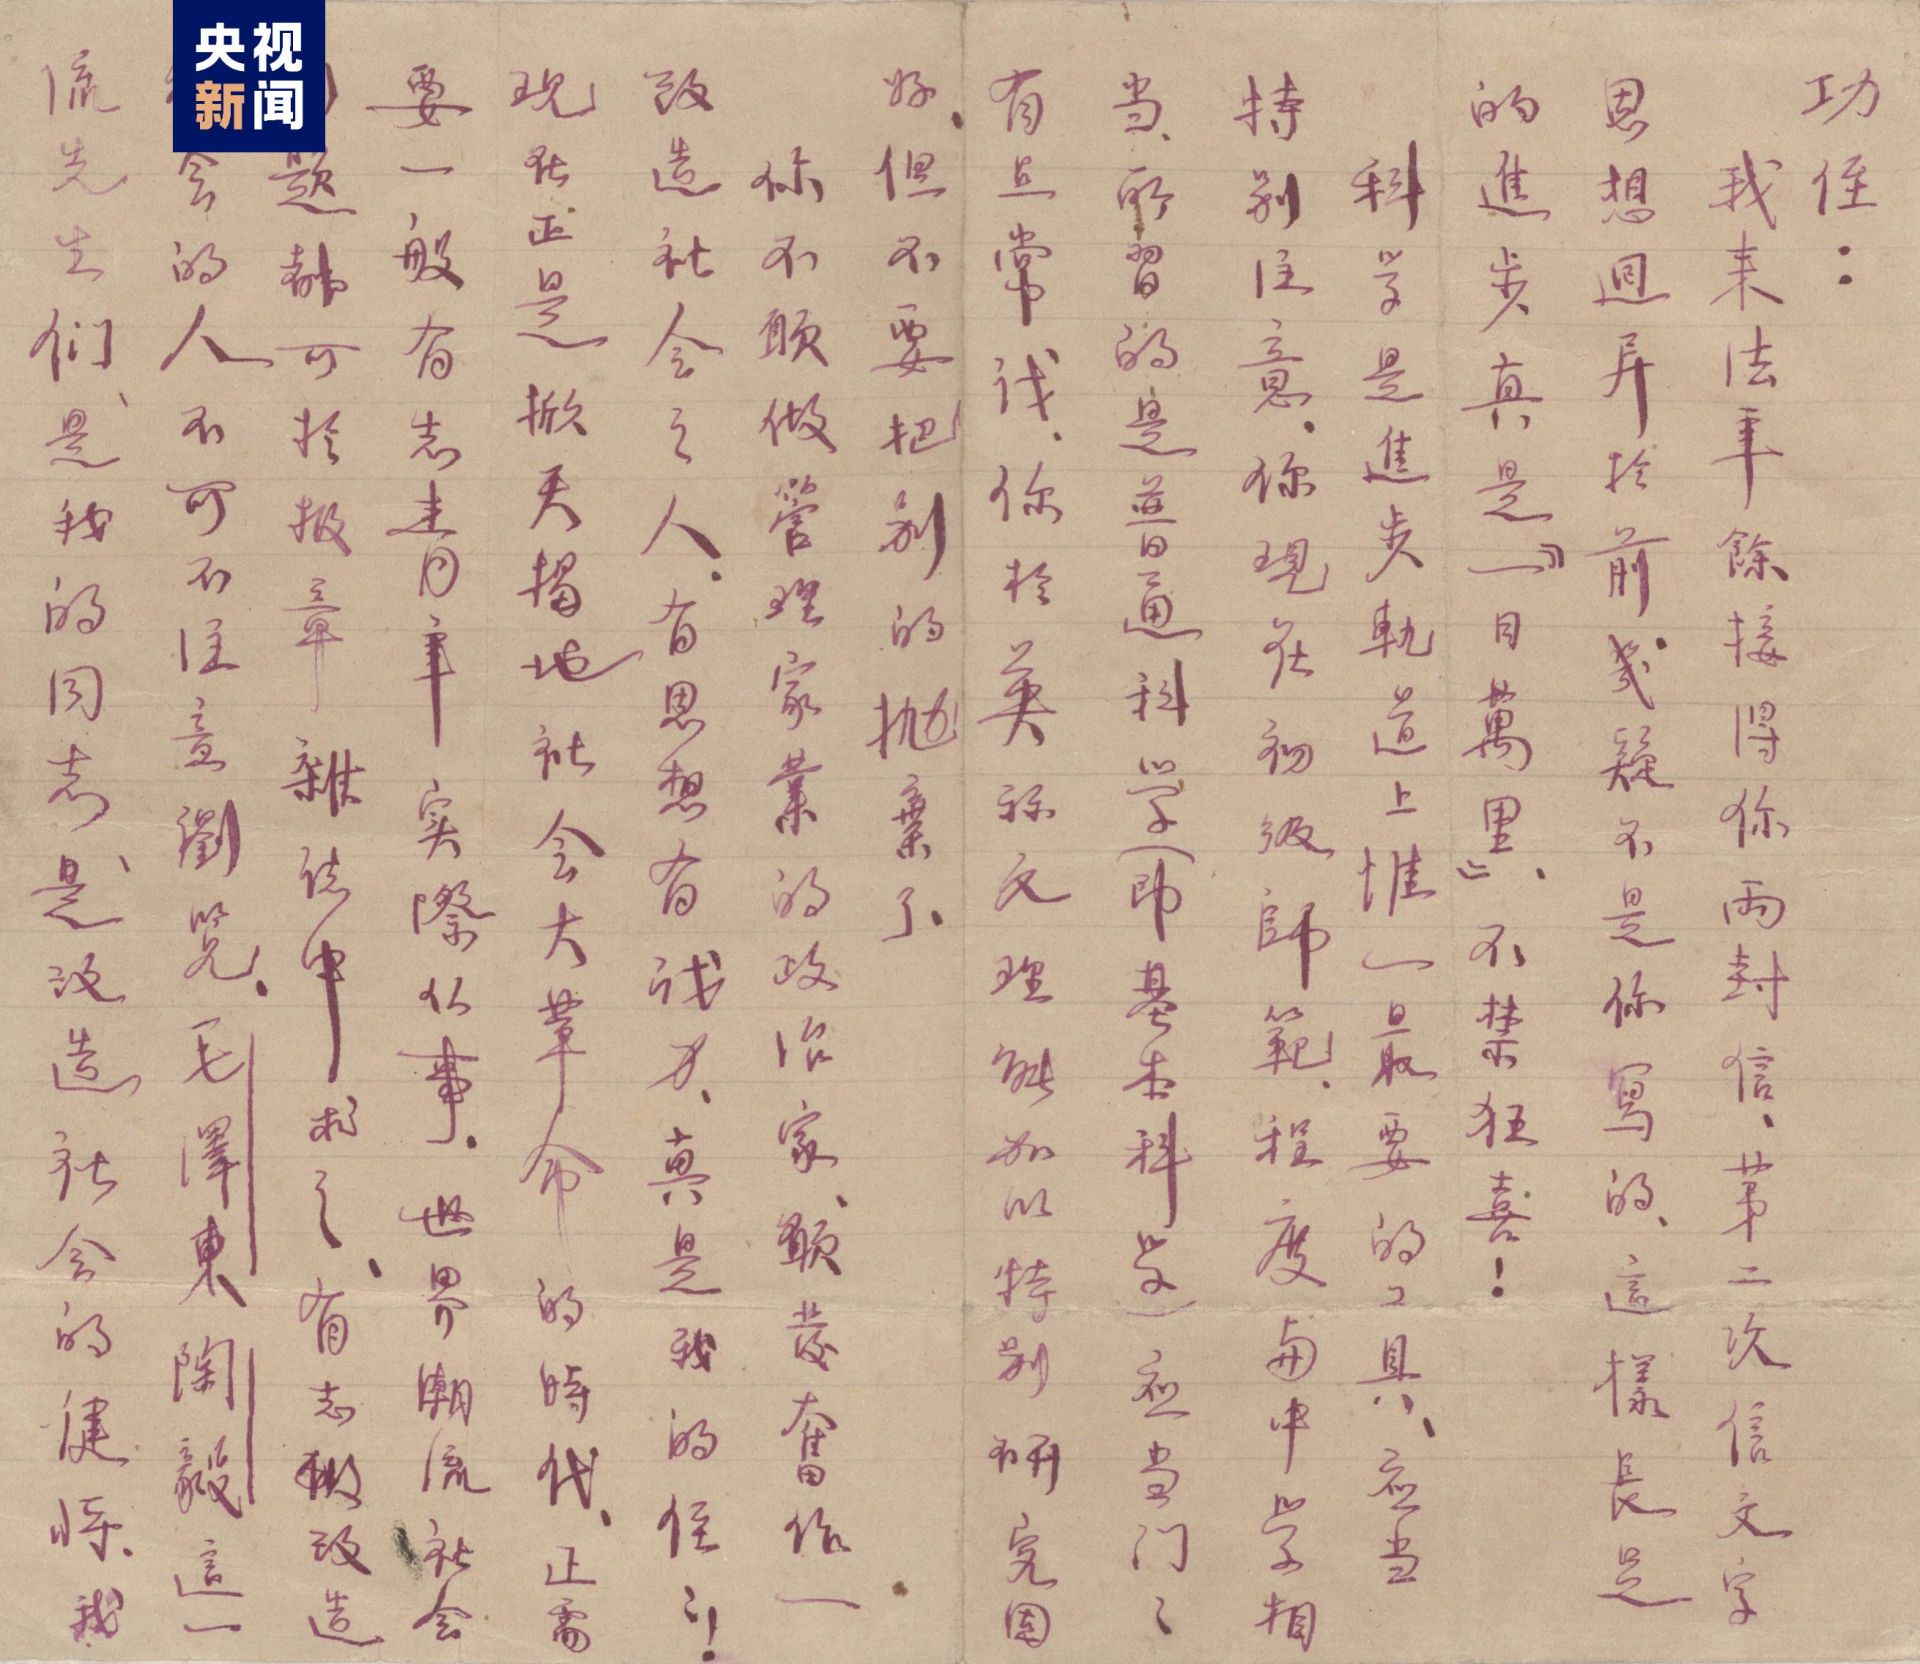 央视
新闻
功侄：
我来法年餘接得你兩封信、第二次信文字
思想迥异於前幾疑不是你寫的、這樣長足
的進步真是『一日萬里』、不禁狂喜！
科学是進步軌道上惟一最要的工具、应当
特别注意、你現在初級師範、程度与中学相
当、所習的是普通科学（即基本科学）应当门〻
有点常识、你於英文理能加以特别研究固
好、但不要把别的抛棄了、
你不願做管理家業的政治家、願發奮作一
改造社会之人、有思想有识力、真是我的侄〻！
现在正是掀天揭地社会大革命的時代、正需
要一般有志青年实際从事、世界潮流社会
题都可於报章雜誌中求之、有志做改造
会的人不可不注意瀏览、毛澤東陶毅這一
流先生们、是我的同志、是改造社会的健将、我